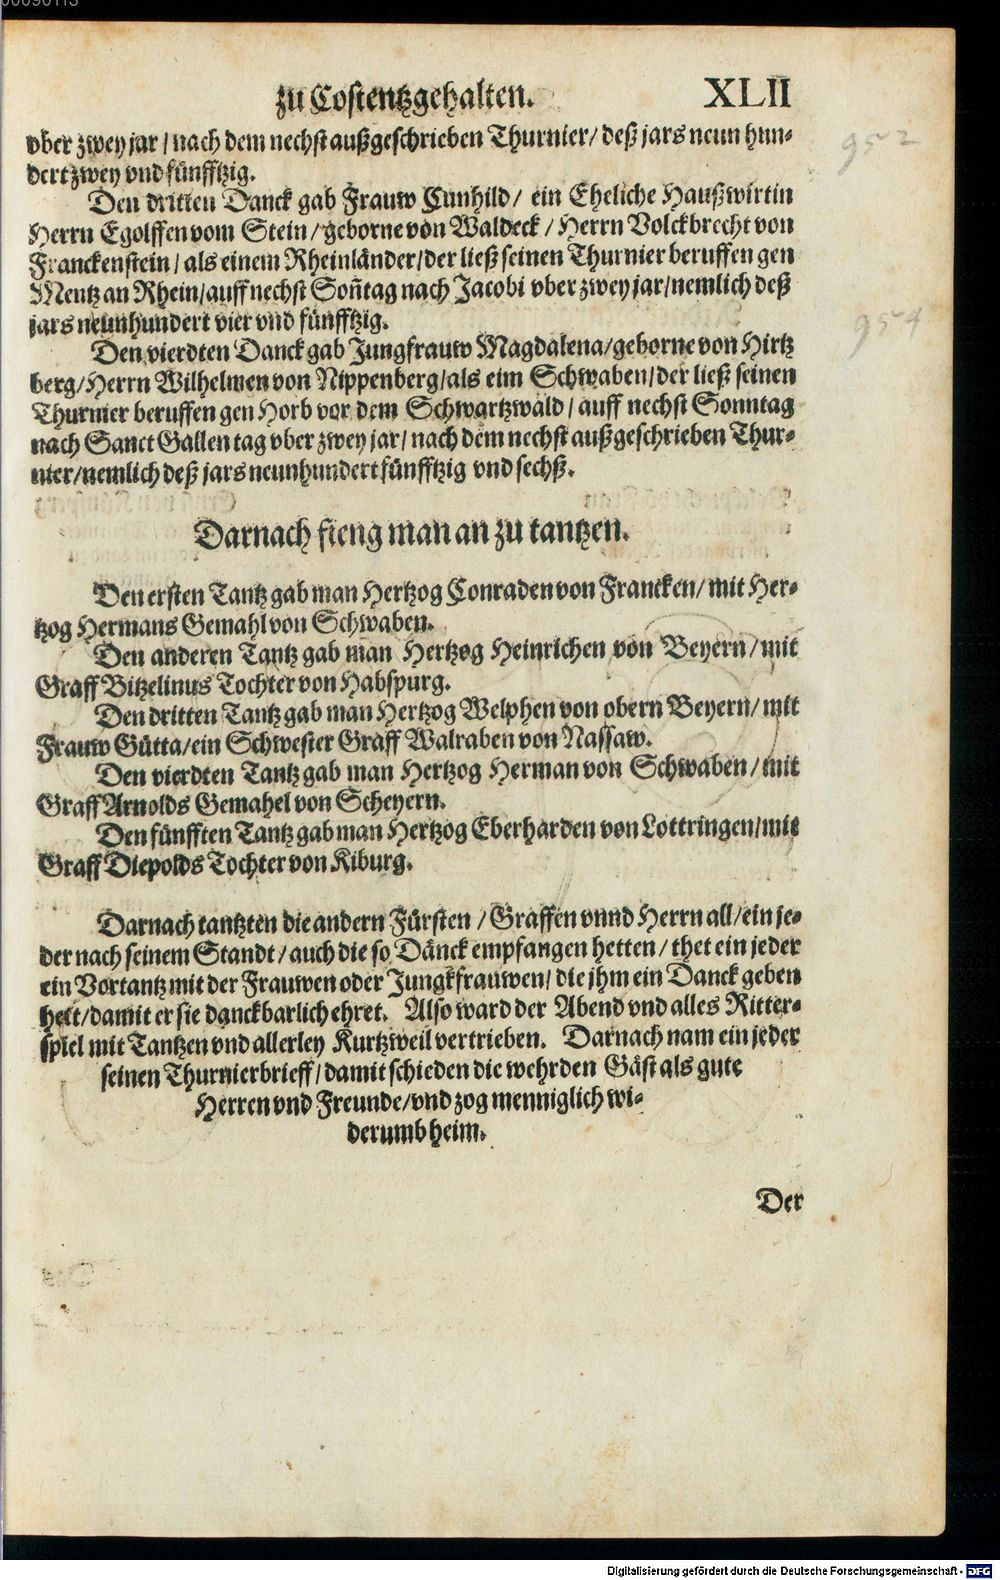 00090113
zu Costentz gehalten. XLII
vber zwey jar / nach dem nechst außgeschrieben Thurnier / deß jars neun hun-
952
dert zwey vnd fünfftzig.
Den dritten Danck gab Frauw Cunhild / ein Eheliche Haußwirtin
Herrn Egolffen vom Stein / geborne von Waldeck / Herrn Volckbrecht von
Franckenstein / als einem Rheinländer / der ließ seinen Thurnier beruffen gen
Mentz an Rhein / auff nechst Soñtag nach Jacobi vber zwey jar / nemlich deß
jars neunhundert vier vnd fünfftzig.
954
Den vierdten Danck gab Jungfrauw Magdalena / geborne von Hirtz
berg / Herrn Wilhelmen von Nippenberg / als eim Schwaben / der ließ seinen
Thurnier beruffen gen Horb vor dem Schwartzwald / auff nechst Sonntag
nach Sanct Gallen tag vber zwey jar / nach dem nechst außgeschrieben Thur-
nier / nemlich deß jars neunhundert fünfftzig vnd sechß.
Darnach fieng man an zu tantzen.
Den ersten Tantz gab man Hertzog Conraden von Francken / mit Her-
tzog Hermans Gemahl von Schwaben.
Den anderen Tantz gab man Hertzog Heinrichen von Beyern / mit
Graff Bitzelinus Tochter von Habspurg.
Den dritten Tantz gab man Hertzog Welphen von obern Beyern / mit
Frauw Gütta / ein Schwester Graff Walraben von Nassaw.
Den vierdten Tantz gab man Hertzog Herman von Schwaben / mit
Graff Arnolds Gemahel von Scheyern.
Den fünfften Tantz gab man Hertzog Eberharden von Lottringen / mit
Graff Diepolds Tochter von Kiburg.
Darnach tantzten die andern Fürsten / Graffen vnnd Herrn all / ein je-
der nach seinem Standt / auch die so Dänck empfangen hetten / thet ein jeder
ein Vortantz mit der Frauwen oder Jungkfrauwen / die jhm ein Danck geben
hett / damit er sie danckbarlich ehret. Also ward der Abend vnd alles Ritter-
spiel mit Tantzen vnd allerley Kurtzweil vertrieben. Darnach nam ein jeder
seinen Thurnierbrieff / damit schieden die wehrden Gäst als gute
Herren vnd Freunde / vnd zog menniglich wi-
derumb heim.
Der
Digitalisierung gefördert durch die Deutsche Forschungsgemeinschaft - DFG